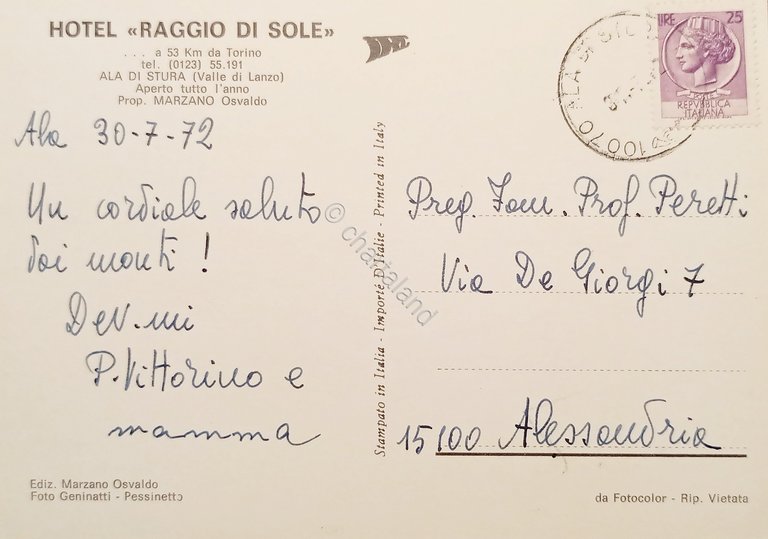 HOTEL «RAGGIO DI SOLE»
... a 53 Km da Torino
tel. (0123) 55.191
ALA DI STURA (Valle di Lanzo)
Aperto tutto l'anno
Prop. MARZANO Osvaldo
Ala 30-7-72
Un cordiale saluto
dai monti!
Dev.mi
P. Vittorino e
mamma
Ediz. Marzano Osvaldo
Foto Geninatti - Pessinetto
Stampato in Italia - Importé D'Italie - Printed in Italy
© chartaland
LIRE 25
POSTE
REPVBBLICA
ITALIANA
10070 ALA DI
Preg. Fam. Prof. Peretti
Via De Giorgi 7
15100 Alessandria
da Fotocolor - Rip. Vietata